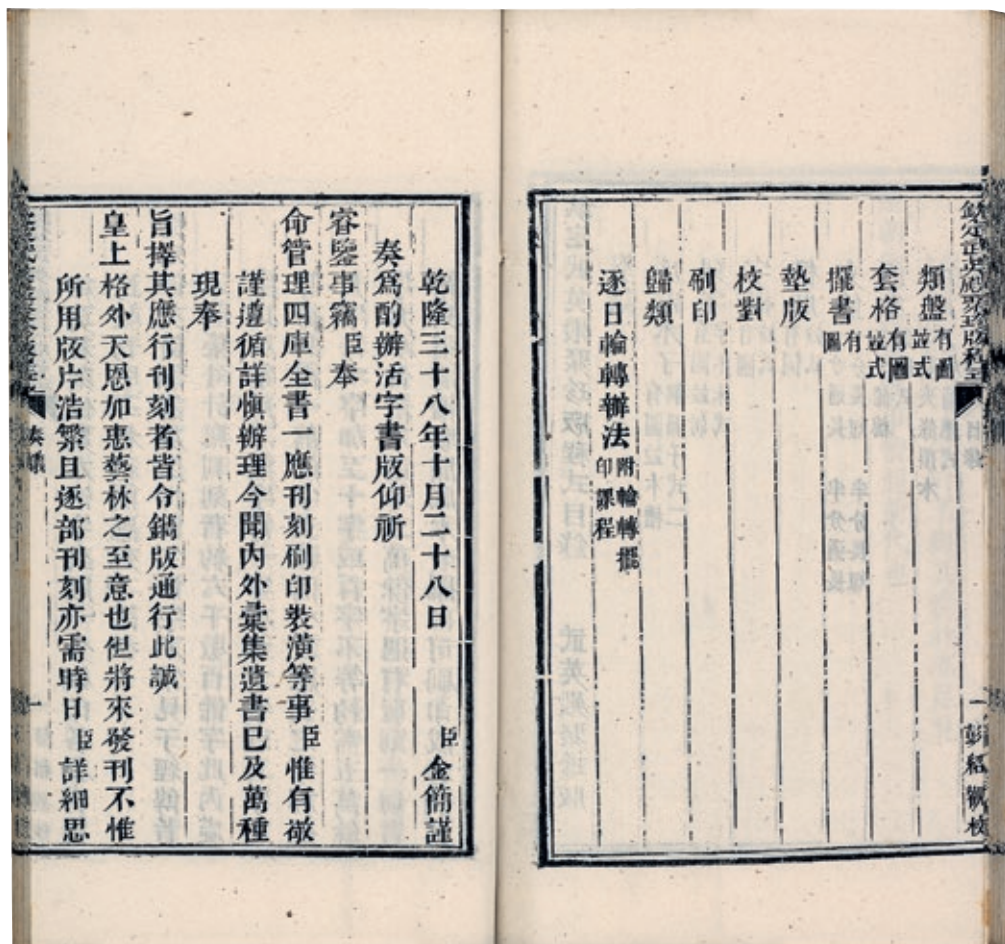 欽定武英殿聚珍版程式
類盤有圖並式
套格有圖並式
擺書有圖
墊版
校對
刷印
歸類
逐日輪轉辦法附輪轉擺印課程
一
彭紹觀校
乾隆三十八年十月二十八日臣金簡謹
奏爲酌辦活字書版仰祈
睿鑒事竊臣奉
命管理四庫全書一應刊刻刷印裝潢等事臣惟有敬
謹遵循詳愼辦理今聞內外彙集遺書已及萬種
現奉
旨擇其應行刊刻者皆令鐫版通行此誠
皇上格外天恩加惠藝林之至意也但將來發刊不惟
所用版片浩繁且逐部刊刻亦需時日臣詳細思
奏議
一